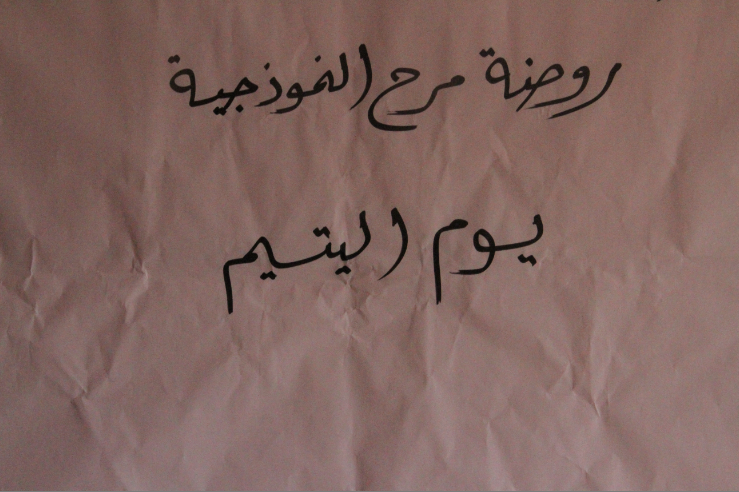 روضة مرح النموذجية
يوم اليتيم